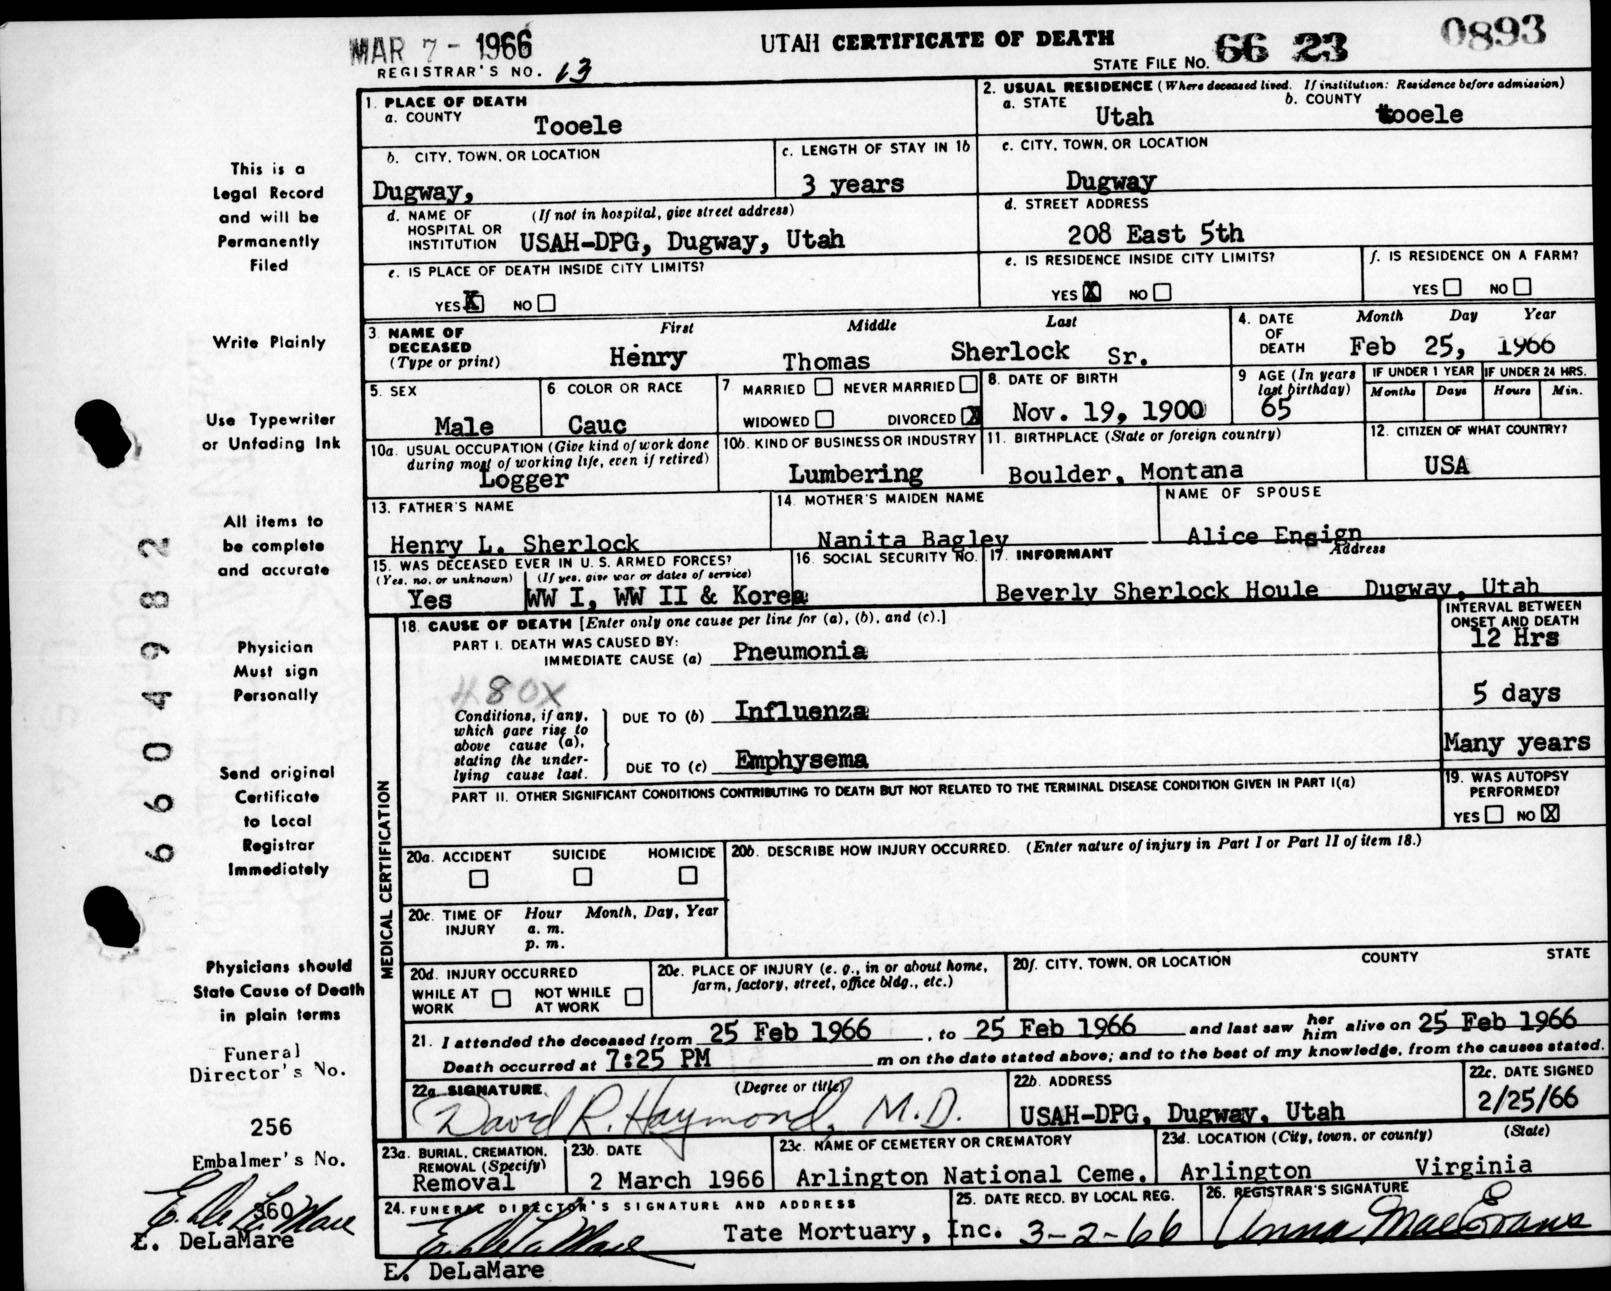 MAR 7 - 1966
UTAH CERTIFICATE OF DEATH
STATE FILE NO. 66 23 0893
REGISTRAR'S NO. 13
1. PLACE OF DEATH
a. COUNTY
Tooele
2. USUAL RESIDENCE (Where deceased lived. If institution: Residence before admission)
a. STATE
Utah
b. COUNTY
tooele
b. CITY, TOWN, OR LOCATION
Dugway,
c. LENGTH OF STAY IN 1b
3 years
c. CITY, TOWN, OR LOCATION
Dugway
d. NAME OF HOSPITAL OR INSTITUTION (If not in hospital, give street address)
USAH-DPG, Dugway, Utah
d. STREET ADDRESS
208 East 5th
e. IS PLACE OF DEATH INSIDE CITY LIMITS?
YES X NO
e. IS RESIDENCE INSIDE CITY LIMITS?
YES X NO
f. IS RESIDENCE ON A FARM?
YES NO
3. NAME OF DECEASED (Type or print)
First Middle Last
Henry Thomas Sherlock Sr.
4. DATE OF DEATH
Month Day Year
Feb 25, 1966
5. SEX
Male
6 COLOR OR RACE
Cauc
7 MARRIED NEVER MARRIED
WIDOWED DIVORCED X
8. DATE OF BIRTH
Nov. 19, 1900
9 AGE (In years last birthday)
65
IF UNDER 1 YEAR IF UNDER 24 HRS.
Months Days Hours Min.
10a. USUAL OCCUPATION (Give kind of work done during most of working life, even if retired)
Logger
10b. KIND OF BUSINESS OR INDUSTRY
Lumbering
11. BIRTHPLACE (State or foreign country)
Boulder, Montana
12. CITIZEN OF WHAT COUNTRY?
USA
13. FATHER'S NAME
Henry L. Sherlock
14. MOTHER'S MAIDEN NAME
Nanita Bagley
NAME OF SPOUSE
Alice Ensign
15. WAS DECEASED EVER IN U. S. ARMED FORCES?
(Yes, no, or unknown) (If yes, give war or dates of service)
Yes WW I, WW II & Korea
16. SOCIAL SECURITY NO.
17. INFORMANT Address
Beverly Sherlock Houle Dugway, Utah
MEDICAL CERTIFICATION
18. CAUSE OF DEATH [Enter only one cause per line for (a), (b), and (c).]
INTERVAL BETWEEN ONSET AND DEATH
PART I. DEATH WAS CAUSED BY:
IMMEDIATE CAUSE (a) Pneumonia
12 Hrs
480X
Conditions, if any, which gave rise to above cause (a), stating the underlying cause last.
DUE TO (b) Influenza
5 days
DUE TO (c) Emphysema
Many years
PART II. OTHER SIGNIFICANT CONDITIONS CONTRIBUTING TO DEATH BUT NOT RELATED TO THE TERMINAL DISEASE CONDITION GIVEN IN PART I(a)
19. WAS AUTOPSY PERFORMED?
YES NO X
20a. ACCIDENT SUICIDE HOMICIDE
20b. DESCRIBE HOW INJURY OCCURRED. (Enter nature of injury in Part I or Part II of item 18.)
20c. TIME OF INJURY
Hour Month, Day, Year
a. m.
p. m.
20d. INJURY OCCURRED
WHILE AT WORK NOT WHILE AT WORK
20e. PLACE OF INJURY (e. g., in or about home, farm, factory, street, office bldg., etc.)
20f. CITY, TOWN, OR LOCATION COUNTY STATE
21. I attended the deceased from 25 Feb 1966, to 25 Feb 1966 and last saw her him alive on 25 Feb 1966
Death occurred at 7:25 PM m on the date stated above; and to the best of my knowledge, from the causes stated.
22a SIGNATURE (Degree or title)
David R. Haymond, M.D.
22b. ADDRESS
USAH-DPG, Dugway, Utah
22c. DATE SIGNED
2/25/66
23a. BURIAL, CREMATION, REMOVAL (Specify)
Removal
23b. DATE
2 March 1966
23c. NAME OF CEMETERY OR CREMATORY
Arlington National Ceme.
23d. LOCATION (City, town, or county) (State)
Arlington Virginia
24. FUNERAL DIRECTOR'S SIGNATURE AND ADDRESS
E. DeLaMare Tate Mortuary, Inc.
E. DeLaMare
25. DATE RECD. BY LOCAL REG.
3-2-66
26. REGISTRAR'S SIGNATURE
Anna Mae Evans
This is a
Legal Record
and will be
Permanently
Filed
Write Plainly
Use Typewriter
or Unfading Ink
All items to
be complete
and accurate
Physician
Must sign
Personally
Send original
Certificate
to Local
Registrar
Immediately
Physicians should
State Cause of Death
in plain terms
Funeral
Director's No.
256
Embalmer's No.
360
E. DeLaMare
E. DeLaMare
6604982